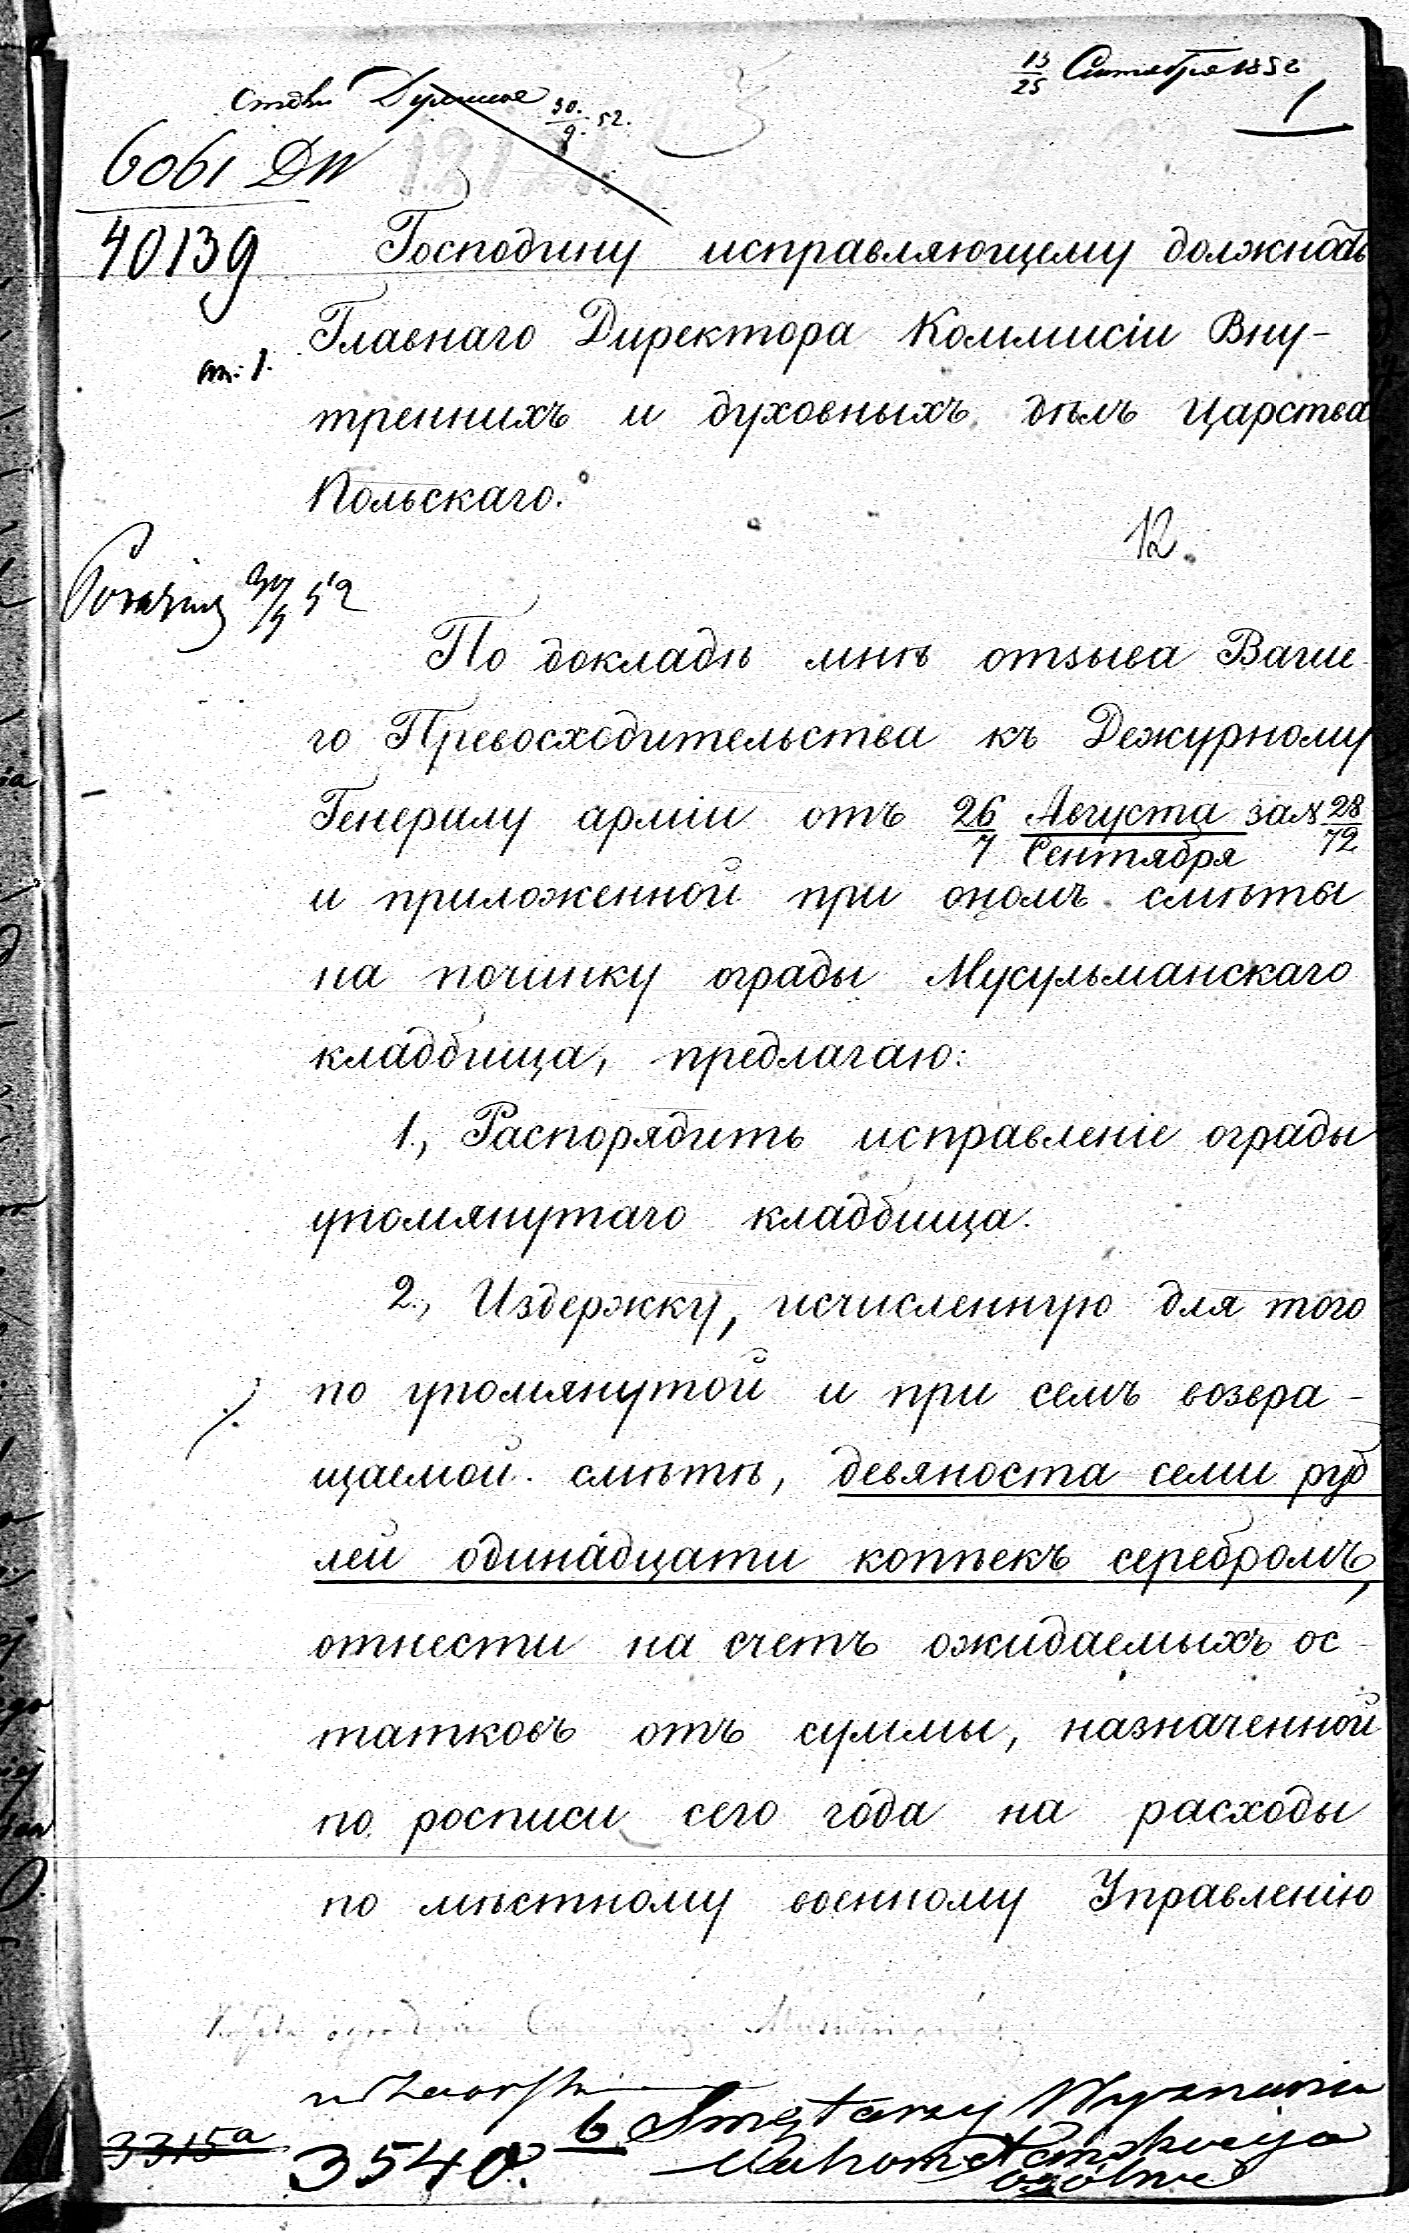 13/25 Сентября 1852
1
30/9 52.
6061 DW
40139
Господину исправляющему должность
Главнаго Директора Коммисіи Вну-
треннихъ и духовныхъ дѣлъ Царства
Польскаго.
12.
30/9 52
По докладѣ мнѣ отзыва Ваше-
го Превосходительства къ Дежурному
Генералу арміи отъ 26 Августа/7 Сентября за № 28/72
и приложенной при ономъ смѣты
на починку ограды Мусульманскаго
кладбища, предлагаю:
1., Распорядить исправленіе ограды
упомянутаго кладбища.
2., Издержку, исчисленную для того
по упомянутой и при семъ возвра-
щаемой смѣтѣ, девяноста семи руб
лей одинадцати копѣекъ серебромъ,
отнести на счетъ ожидаемыхъ ос-
татковъ отъ суммы, назначенной
по росписи сего года на расходы
по мѣстному военному Управленію
6 Smętarzy Wyznania
3315a
3540.
Mahometańskiego
ogólne